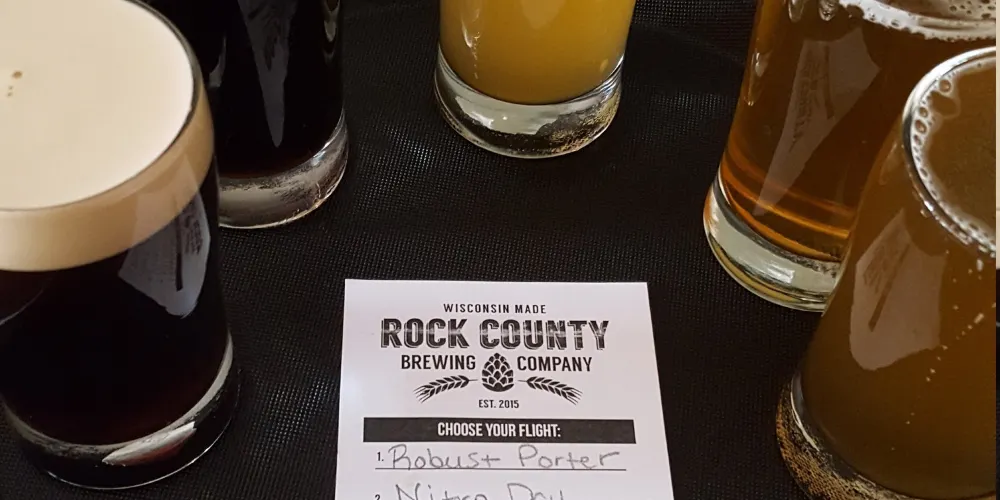 WISCONSIN MADE
ROCK COUNTY
BREWING COMPANY
EST. 2015
CHOOSE YOUR FLIGHT:
1. Robust Porter
2 Nitro